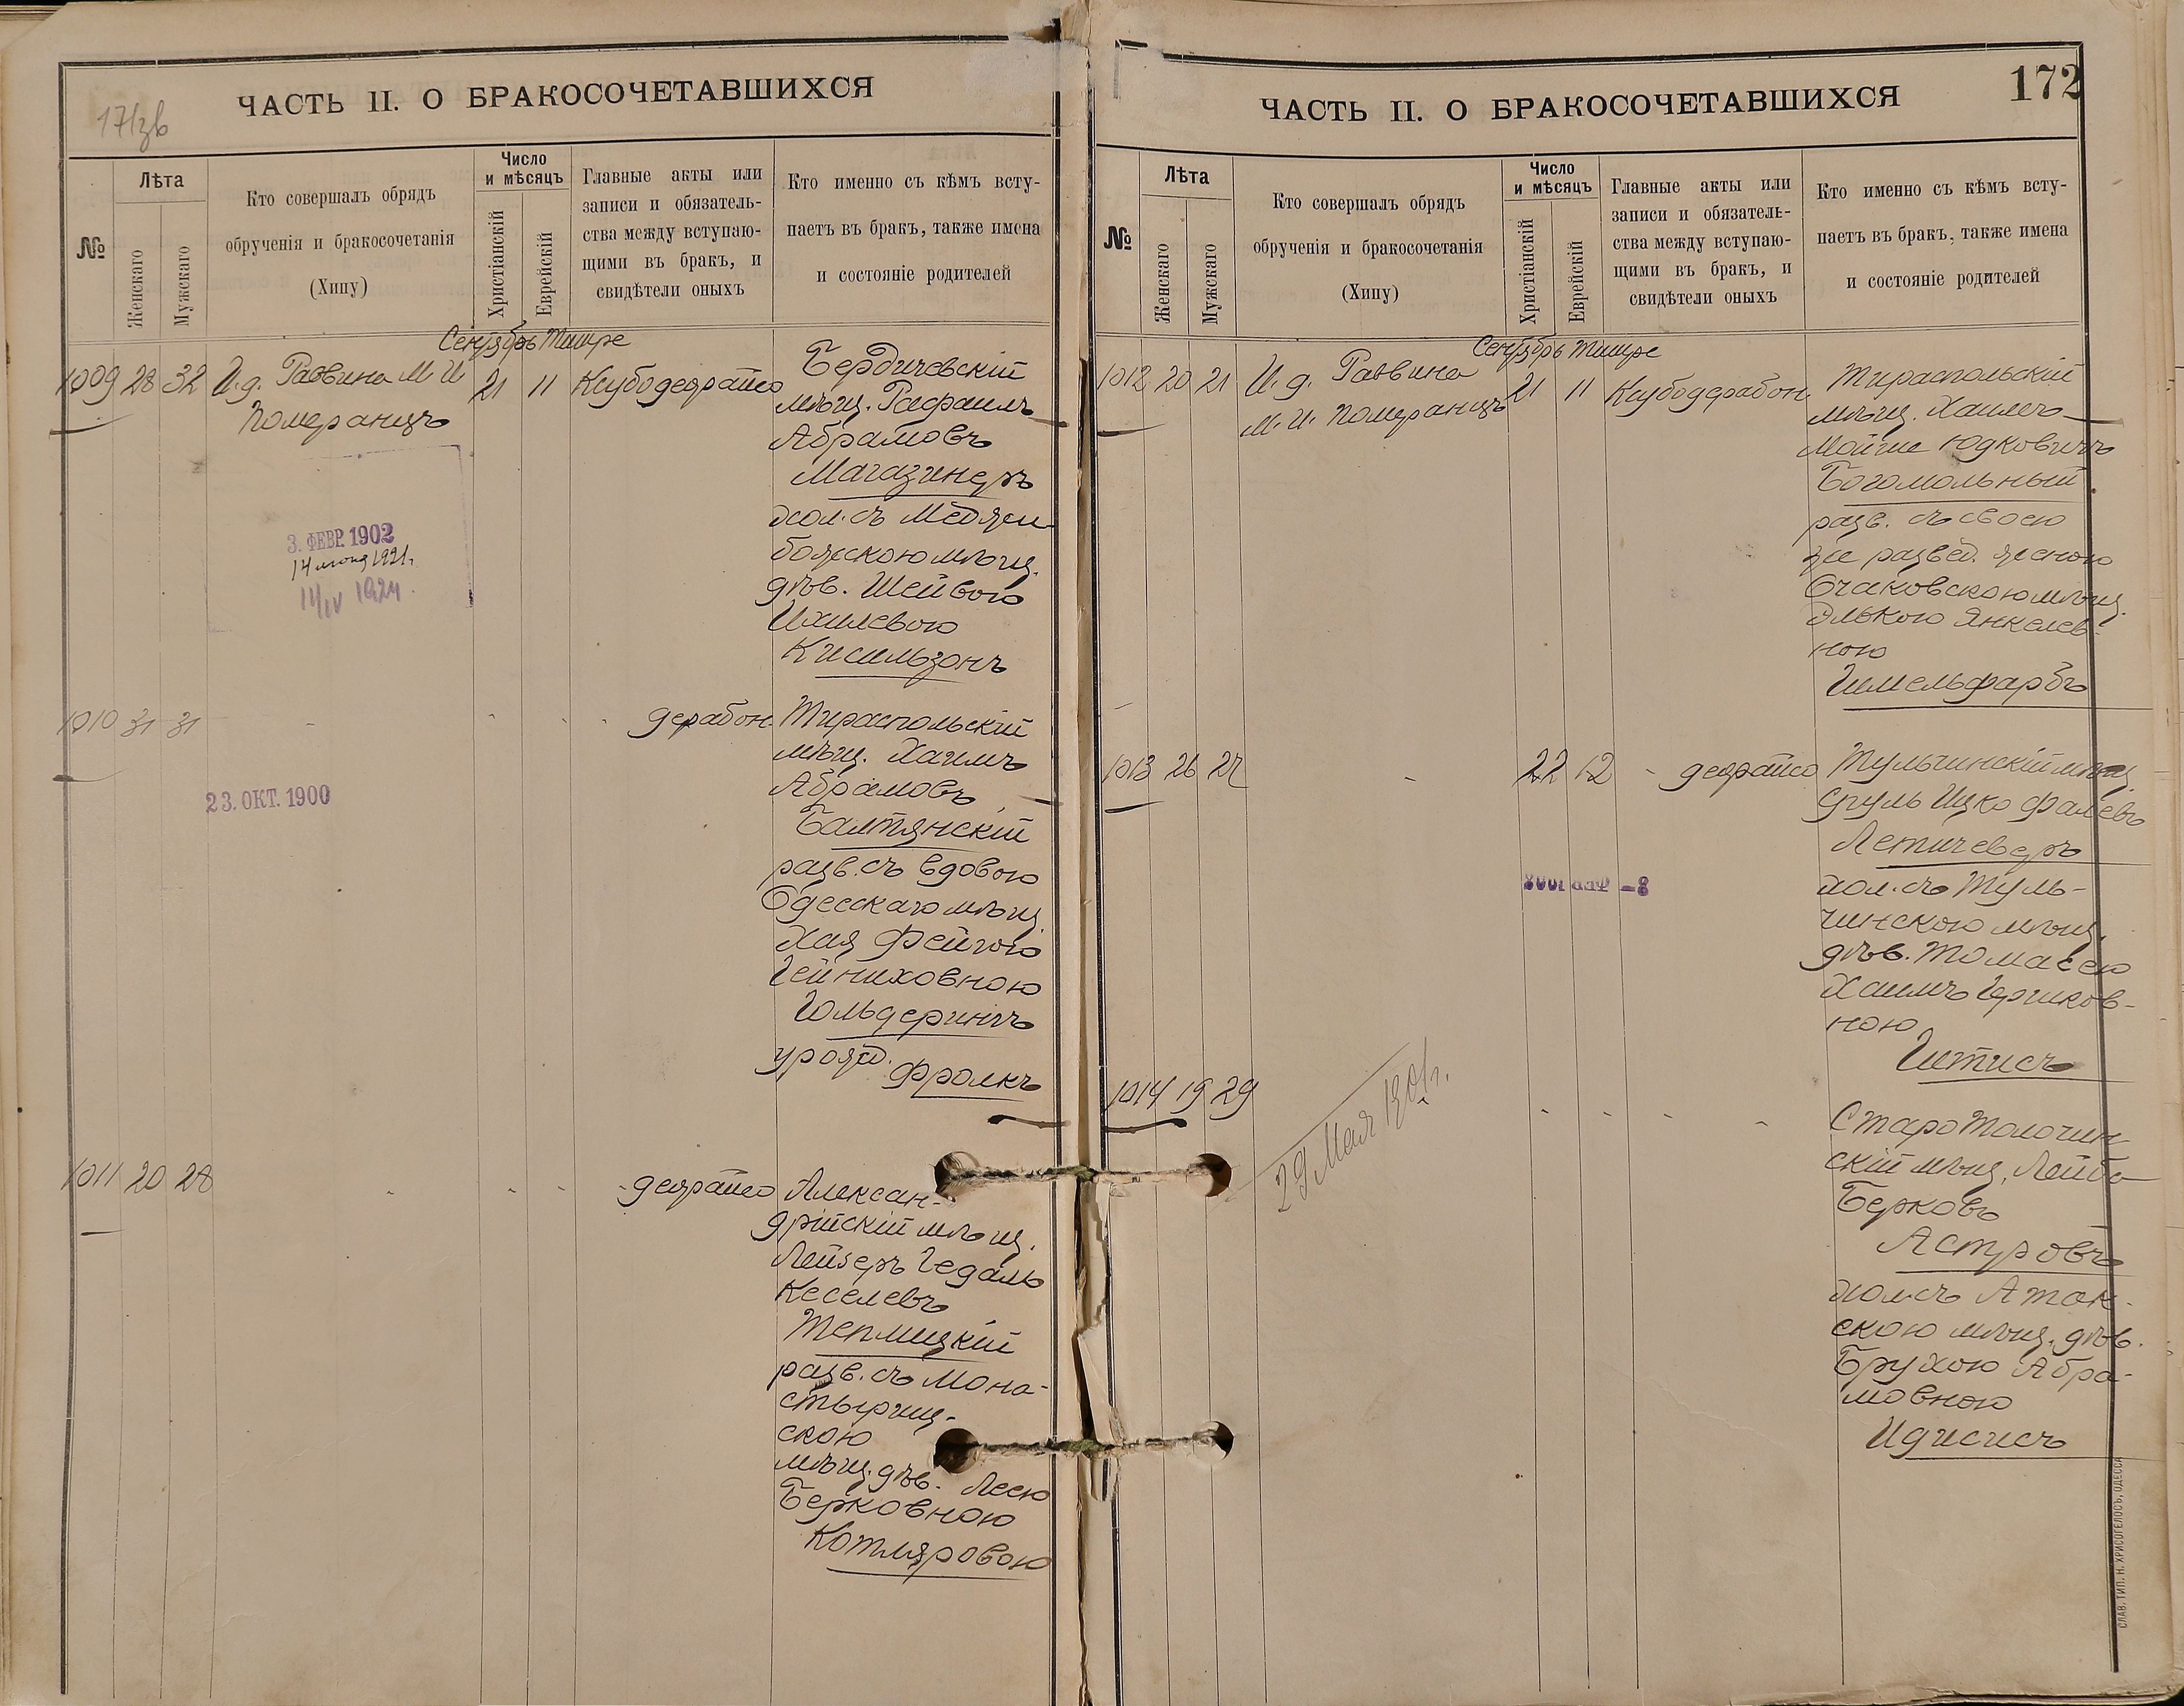 171зв
ЧАСТЬ II. О БРАКОСОЧЕТАВШИХСЯ
№
Лѣта
Женскаго
Мужскаго
Кто совершалъ обрядъ
обрученія и бракосочетанія
(Хипу)
Число
и мѣсяцъ
Христіанскій
Еврейскій
Главные акты или
записи и обязатель-
ства между вступаю-
щими въ бракъ, и
свидѣтели оныхъ
Кто именно съ кѣмъ всту-
паетъ въ бракъ, также имена
и состояніе родителей
Сентябрь Тишре
1009 28 32 И.д. Раввина М. И.
Померанцъ
21 11 Ксубодеораисо
Бердичевскій
мѣщ. Рафаилъ
Абрамовъ
Магазинеръ
хол. съ Меджи-
божскою мѣщ.
дѣв. Шейвою
Ихилевою
Кисильзонъ
3. ФЕВР. 1902
14 июня 1921г.
11/IV 1924.
1010 31 31 - - - - дерабон.
Тираспольскій
мѣщ. Хаимъ
Абрамовъ
Балтянскій
разв. съ вдовою
Одесскаго мѣщ.
Хая Фейгою
Гейниховною
Гольдерингъ
урожд. Фролкъ
23. ОКТ. 1900
1011 20 28 - - - - деораисо
Алексан-
дрійскій мѣщ.
Лейзеръ Гедаль
Кеселевъ
Теплицкій
разв. съ Мона-
стырищ-
скою
мѣщ. дѣв. Леею
Берковною
Котляровою
172
ЧАСТЬ II. О БРАКОСОЧЕТАВШИХСЯ
№
Лѣта
Женскаго
Мужскаго
Кто совершалъ обрядъ
обрученія и бракосочетанія
(Хипу)
Число
и мѣсяцъ
Христіанскій
Еврейскій
Главные акты или
записи и обязатель-
ства между вступаю-
щими въ бракъ, и
свидѣтели оныхъ
Кто именно съ кѣмъ всту-
паетъ въ бракъ, также имена
и состояніе родителей
Сентябрь Тишре
1012 20 21 И. д. Раввина
М. И. Померанцъ
21 11 Ксубодерабон.
Тираспольскій
мѣщ. Хаимъ
Мойше Юдковичъ
Богомольный
разв. съ своею
же развед. женою
Очаковскою мѣщ.
Элькою Янкелев-
ною
Гимельфарбъ
1013 26 27 - 22 12 - деораисо
Тульчинскій мѣщ.
Сруль Ицко
Летичеверъ
хол. съ Туль-
чинскою мѣщ.
дѣв. Томасею
Хаимъ Гершков-
ною
Гитисъ
1014 19 29 - - - -
29 Мая 1901г.
Старо Толочин-
скій мѣщ. Лейба
Берковъ
Астровъ
хол. съ Атак-
скою мѣщ. дѣв.
Брухою Абра-
мовною
Идисисъ
СЛАВ. ТИП. Н. ХРИСОГЕЛОСЪ, ОДЕССА